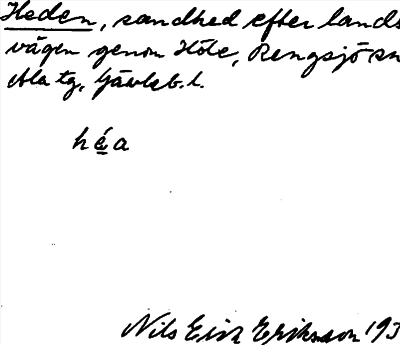 Heden, sandhed efter lands
vägen genom Höle, Rengsjö sn
Ala tg, Gävleb. l.
héa
Nils Eric Eriksson 193